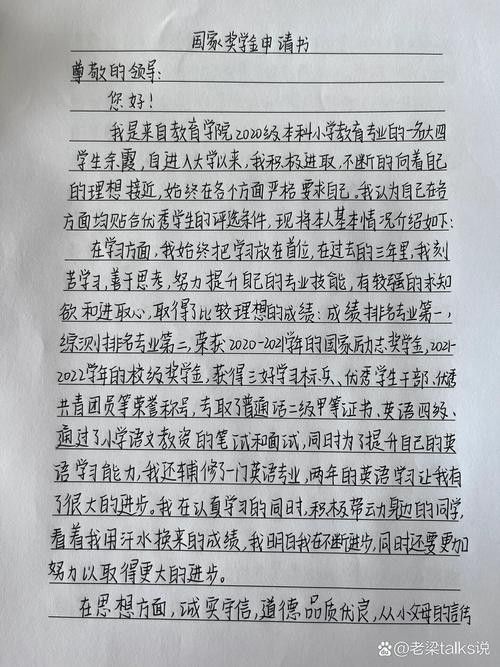 国家奖学金申请书
尊敬的领导:
您好!
我是来自教育学院2020级本科小学教育专业的一名大四
学生余霞,自进入大学以来,我积极进取,不断的向着自己
的理想接近,始终在各个方面严格要求自己。我认为自己在各
方面均贴合优秀学生的评选条件,现将本人基本情况介绍如下:
在学习方面,我始终把学习放在首位,在过去的三年里,我刻
苦学习,善于思考,努力提升自己的专业技能,有较强的求知
欲和进取心,取得了比较理想的成绩:成绩排名专业第一,
综测排名专业第二,荣获2020-2021学年的国家励志奖学金,2021-
2022学年的校级奖学金,获得三好学习标兵、优秀学生干部、优秀
共青团员等荣誉称号,考取了普通话二级甲等证书、英语四级、
通过了小学语文教资的笔试和面试,同时为了提升自己的英
语学习能力,我还辅修了一门英语专业,两年的英语学习让我有
了很大的进步。我在认真学习的同时,积极带动身边的同学,
看着我用汗水换来的成绩,我明白我在不断进步,同时还要更加
努力以取得更大的进步。
在思想方面,诚实守信,道德品质优良,从小父母的言传
@老梁talks说